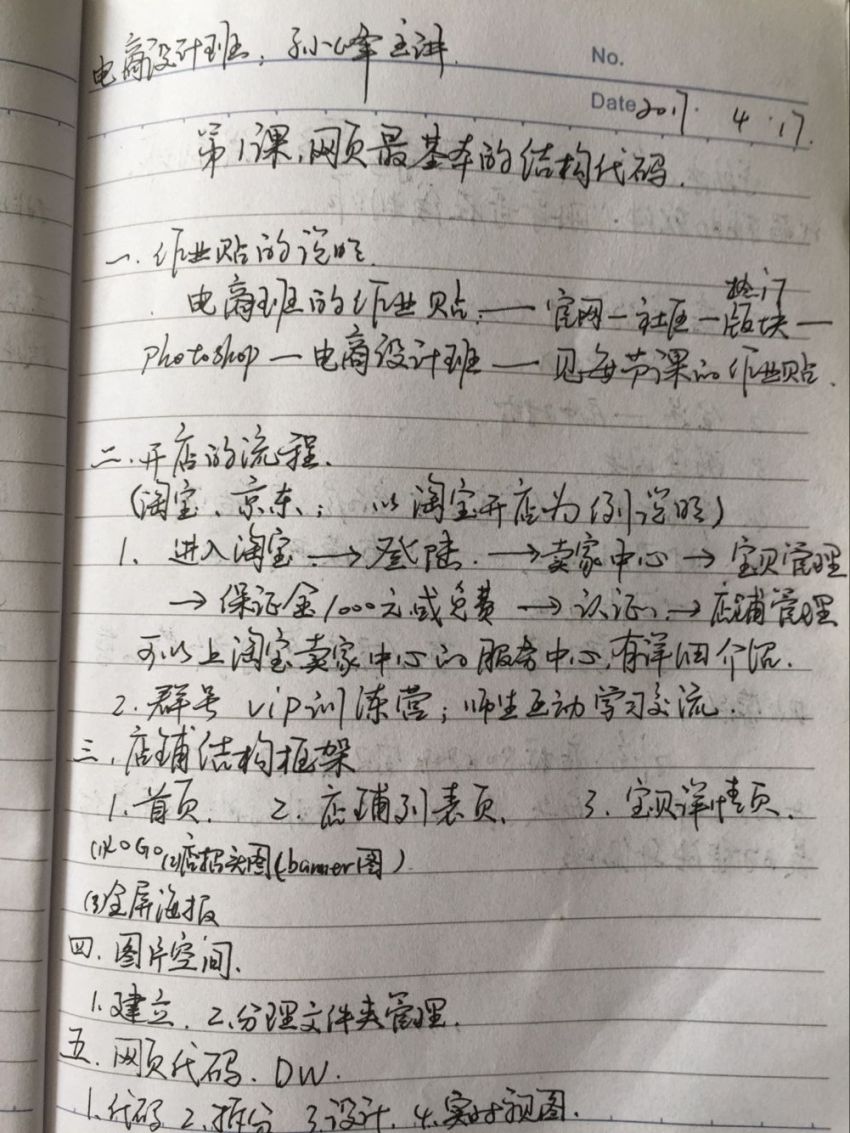 电商设计班：孙小峰主讲.
No.
Date 2017. 4. 17.
第1课、网页最基本的结构代码.
一、作业贴的说明.
热门
电商班的作业贴.—官网—社区—版块—
Photoshop—电商设计班—见每节课的作业贴.
二、开店的流程.
(淘宝、京东; 以淘宝开店为例说明)
1、进入淘宝→登陆.→卖家中心→宝贝管理
→保证金1000元或免费→认证、→店铺管理
可以上淘宝卖家中心的服务中心,有详细介绍.
2.群号 vip训练营；师生互动学习交流.
三、店铺结构框架
1.首页. 2.店铺列表页. 3.宝贝详情页.
(1)LOGO(2)店招头图(banner图)
(3)全屏海报
四.图片空间.
1.建立. 2.分理文件夹管理.
五、网页代码. DW.
1.代码 2.拆分 3.设计. 4.实时视图.